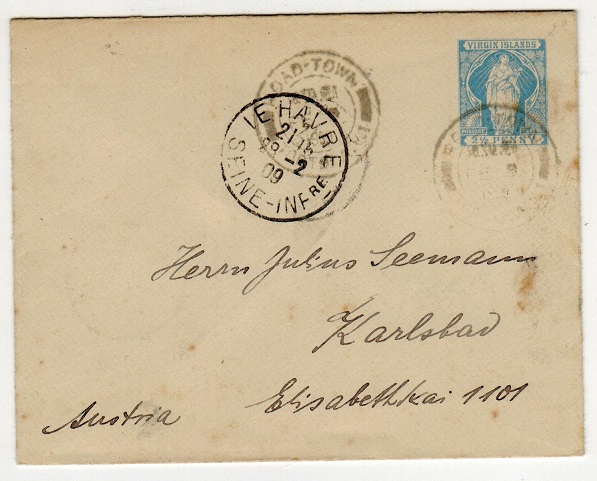 VIRGIN ISLANDS
POSTAGE
2½ PENNY
ROAD-TOWN
LE HAVRE
21 15
29 -2
09
SEINE-INFRE
Herrn Julius Seemann
Karlsbad
Elisabethkai 1101
Austria